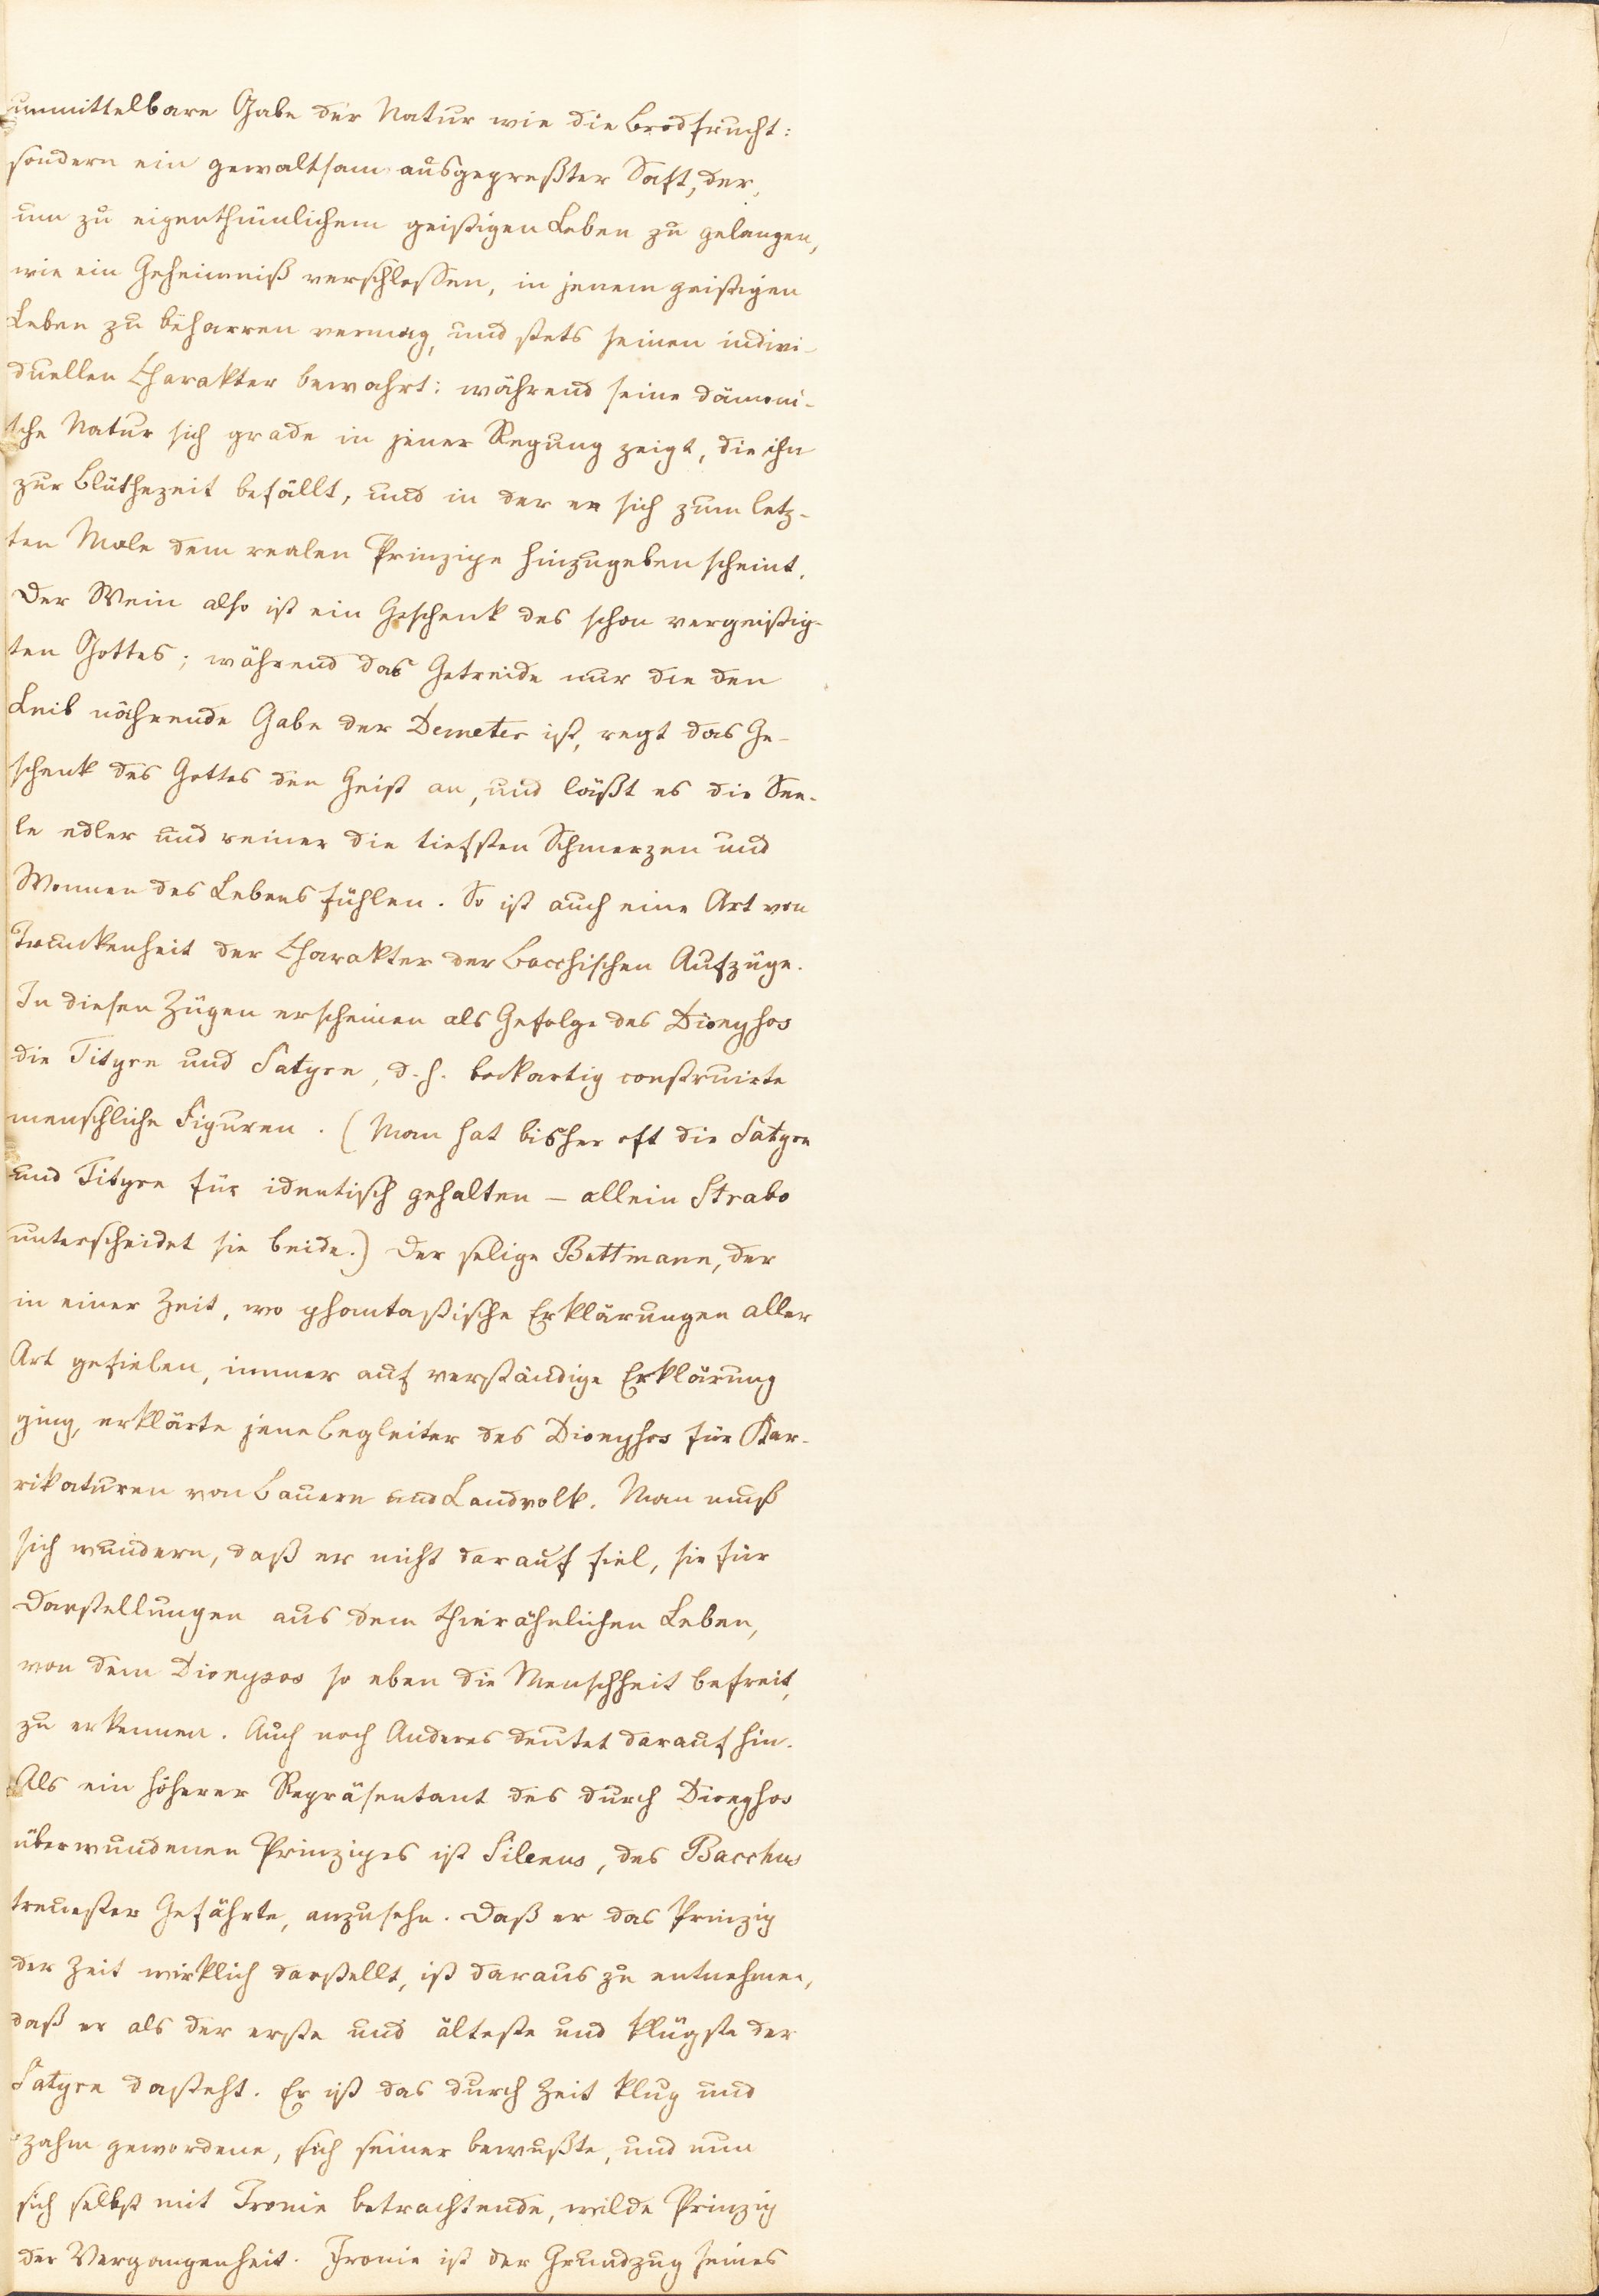 unmittelbare Gabe der Natur wie die Brodfrucht:
sondern ein gewaltsam ausgepreßter Saft, der,
um zu eigenthümlichem geistigen Leben zu gelangen,
wie ein Geheimniß verschlossen, in jenem geistigen
Leben zu beharren vermag, und stets seinen indivi-
duellen Charakter bewahrt: während seine dämoni-
sche Natur sich grade in jener Regung zeigt, die ihn
zur Blüthezeit befällt, und in der er sich zum letz-
ten Male dem realen Prinzipe hinzugeben scheint.
Der Wein also ist ein Geschenk des schon vergeistig-
ten Gottes; während das Getreide nur die den
Leib nährende Gabe der Demeter ist, regt das Ge-
schenk des Gottes den Geist an, und läßt es die See-
le edler und reiner die tiefsten Schmerzen und
Wonnen des Lebens fühlen. So ist auch eine Art von
Trunkenheit der Charakter der Bacchischen Aufzüge.
In diesen Zügen erscheinen als Gefolge des Dionysos
die Tityre und Satyre, d. h. bockartig construirte
menschliche Figuren. (Man hat bisher oft die Satyre
und Tityre für identisch gehalten – allein Strabo
unterscheidet sie beide.) Der selige Bettmann, der
in einer Zeit, wo phantastische Erklärungen aller
Art gefielen, immer auf verständige Erklärung
ging, erklärte jene Begleiter des Dionysos für Kar-
rikaturen von Bauern und Landvolk. Man muß
sich wundern, daß er nicht darauf fiel, sie für
Darstellungen aus dem thierähnlichen Leben,
von dem Dionysos so eben die Menschheit befreit,
zu erkennen. Auch noch Anderes deutet darauf hin.
Als ein höherer Repräsentant des durch Dionysos
überwundenen Prinzipes ist Silenus, des Bacchus
treuester Gefährte, anzusehn. Daß er das Prinzip
der Zeit wirklich darstellt, ist daraus zu entnehmen,
daß er als der erste und älteste und klügste der
Satyre dasteht. Er ist das durch Zeit klug und
zahm gewordene, sich seiner bewußte, und nun
sich selbst mit Ironie betrachtende, wilde Prinzip
der Vergangenheit. Ironie ist der Grundzug seines